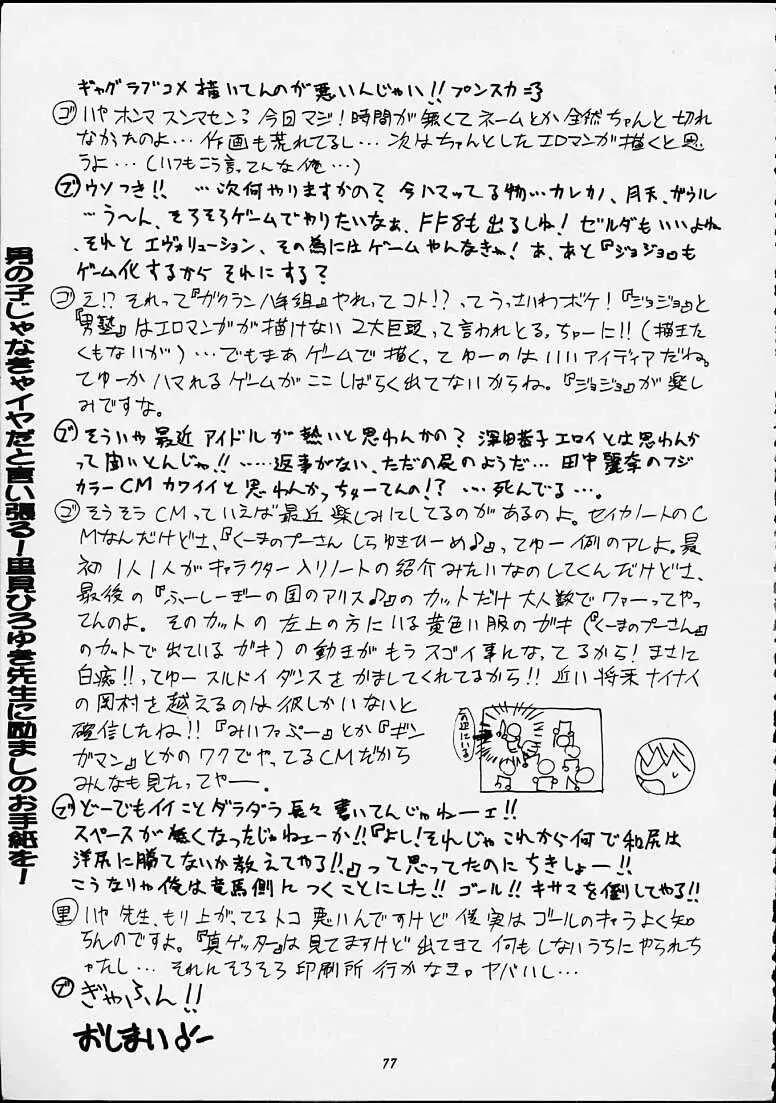 ギャグラブコメ描いてんのが悪いんじゃい!!プンスカ=3
ゴ いやホンマスンマセン?今日マジ!時間が無くてネームとか全然ちゃんと切れ
なかったのよ…作画も荒れてるし…次はちゃんとしたエロマンガ描くと思
うよ…(いつもこう言ってんな俺…)
ブ ウソつき!!…次何やりますかの?今ハマッてる物…カレカノ、月天、ガウル
…う〜ん、そろそろゲームでやりたいなぁ、FF8も出るしね!ゼルダもいいよね
、それとエヴォリューション、その為にはゲームやんなきゃ!あ、あと『ジョジョ』も
ゲーム化するからそれにする?
ゴ え!?それって『ガクラン八年組』やれってコト!?ってうっさいわボケ!『ジョジョ』と
『男塾』はエロマンガが描けない2大巨頭って言われとる、ちゅーに!!(描きた
くもないが)…でもまあゲームで描くってゆーのはいいアイディアだね。
てゆーかハマれるゲームがここしばらく出てないからね。『ジョジョ』が楽し
みですな。
ブ そういや最近アイドルが熱いと思わんかの?深田恭子エロイとは思わんか
って聞いとんじゃ!!……返事がない、ただの屍のようだ…田中麗奈のフジ
カラーCMカワイイと思わんかっちゅーてんの!?…死んでる…。
ゴ そうそうCMっていえば最近楽しみにしてるのがあるのよ。セイカノートのC
Mなんだけどさ、『くーまのプーさんしらゆきひーめ♪』ってゆー例のアレよ。最
初1人1人がキャラクター入りノートの紹介みたいなのしてくんだけどさ、
最後の『ふーしーぎーの国のアリス♪』のカットだけ大人数でワァーってやっ
てんのよ。そのカットの左上の方にいる黄色い服のガキ(『くーまのプーさん』
のカットで出ているガキ)の動きがもうスゴイ事になってるから!まさに
白痴!!ってゆースルドイダンスをかましてくれてるから!!近い将来ナイナイ
の岡村を越えるのは彼しかいないと
確信したね!!『みいファぷー』とか『ギン
ガマン』とかのワクでやってるCMだから
みんなも見たってやー。
この辺にいる
ブ どーでもイイことダラダラ長々書いてんじゃねーェ!!
スペースが無くなったじゃねェーか!!『よし!それじゃこれから何で和尻は
洋尻に勝てないか教えてやる!!』って思ってたのにちきしょー!!
こうなりゃ俺は竜馬側につくことにした!!ゴール!!キサマを倒してやる!!
里 いや先生、もり上がってるトコ悪いんですけど僕実はゴールのキャラよく知
らんのですよ。『真ゲッター』は見てますけど出てきて何もしないうちにやられち
ゃたし…それにそろそろ印刷所行かなきゃヤバいし…
ブ ぎゃふん!!
おしまい♪ー
男の子じゃなきゃイヤだと言い張る!里見ひろゆき先生に励ましのお手紙を!
77